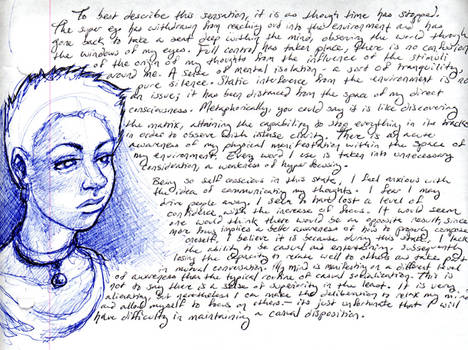 To best describe this sensation, it is as though time has stopped.
The super ego has withdrawn from reaching out into the environment and has
gone back to take a seat deep within the mind, observing the world through
the windows of my eyes. Full control has taken place, there is no confusion
of the origin of my thoughts from the influence of the stimuli
around me. A sense of mental isolation - a sort of tranquility,
pure silence. Static interference from the environment is no
an issue; it has been distanced from the space of my direct
consciousness. Metaphorically, you could say it is like discovering
the matrix, attaining the capability to stop everything in its tracks
in order to observe with intense clarity. There is an acute
awareness of my physical manifestation within the space of
my environment. Every word I use is taken into unnecessary
consideration, an awareness of hyper focusing.
Being so self conscious in this state, I feel anxious with
the idea of communicating my thoughts. I fear I may
drive people away. I seem to have lost a level of
confidence with the increase of focus. It would seem
one would think there would be an opposite result, since
more focus implies a better awareness of how to properly compose
oneself. I believe it is because during this state, I lack
the ability to be casual and entertaining, subsequently
losing the capacity to relate well to others and take part
in mutual conversation. My mind is manifesting on a different level
of awareness than the typical routine of casual socialization. This is
not to say there is a sense of superiority in the least. It is very
alienating, but nevertheless I can make the deliberation to relax my mind
and allow myself to focus on others — its just unfortunate that I will
have difficulty in maintaining a casual disposition.